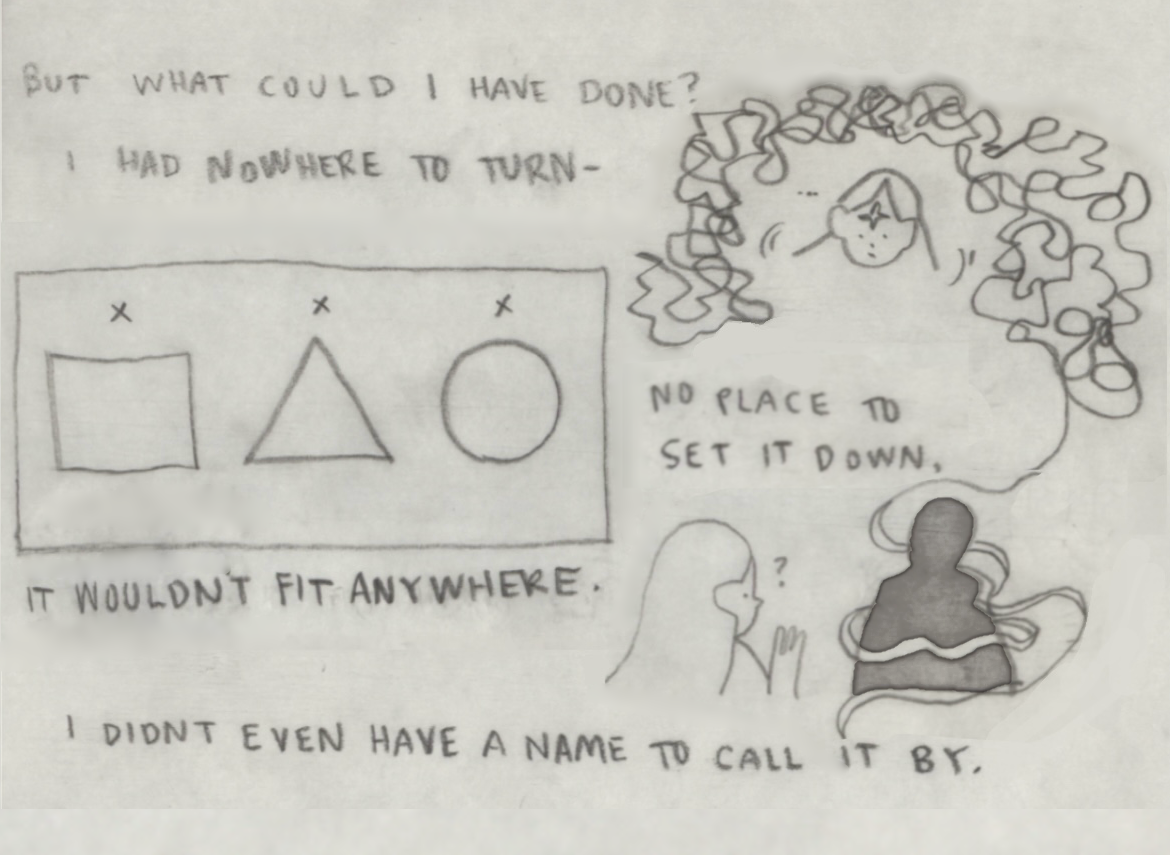 BUT WHAT COULD I HAVE DONE?
I HAD NOWHERE TO TURN-
...
x x x
NO PLACE TO
SET IT DOWN.
?
IT WOULDN'T FIT ANYWHERE.
I DIDNT EVEN HAVE A NAME TO CALL IT BY.